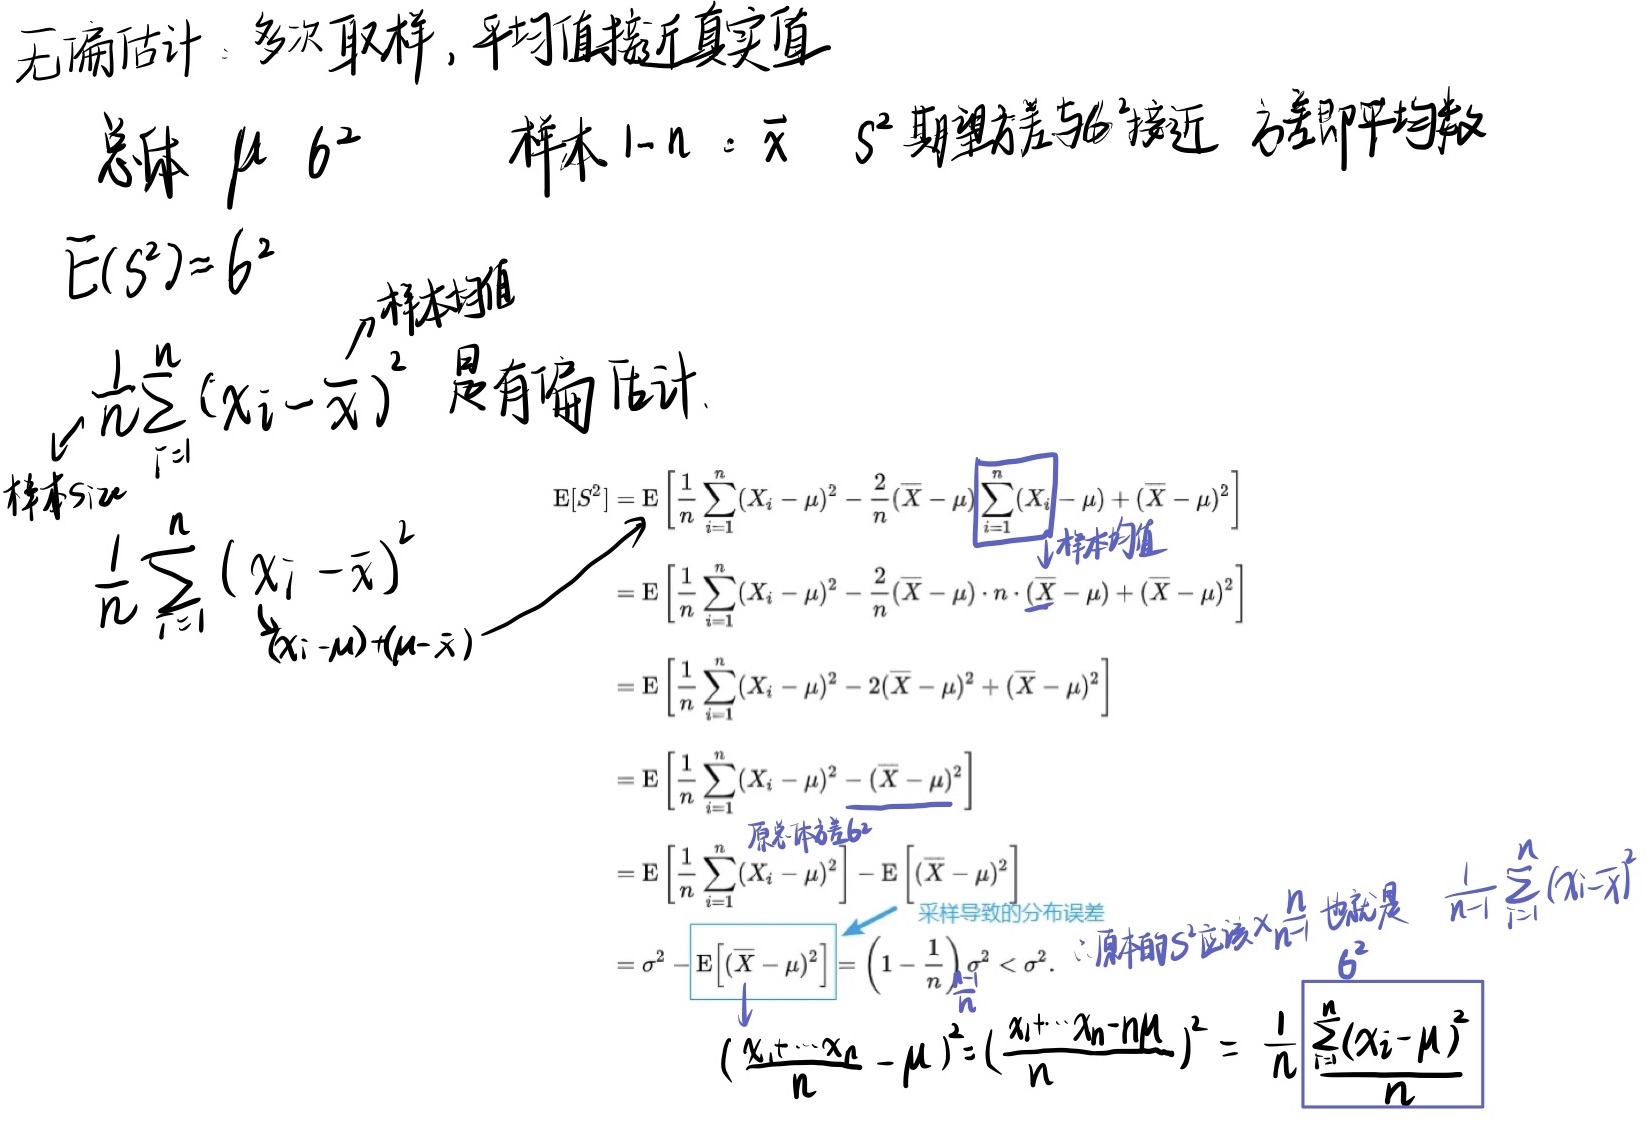 无偏估计：多次取样，平均值接近真实值
总体 μ 6² 样本1-n：x̄ S²期望方差与6²接近 方差即平均数
E(S²)≈6²
样本均值
1/n ∑_{i=1}^{n} (xi - x̄)² 是有偏估计.
样本size
1/n ∑_{i=1}^{n} (xi - x̄)²
(xi-μ)+(μ-x̄)
E[S²] = E [ 1/n ∑_{i=1}^{n} (X_i − μ)² − 2/n (X̄ − μ) ∑_{i=1}^{n} (X_i − μ) + (X̄ − μ)² ]
样本均值
= E [ 1/n ∑_{i=1}^{n} (X_i − μ)² − 2/n (X̄ − μ) · n · (X̄ − μ) + (X̄ − μ)² ]
= E [ 1/n ∑_{i=1}^{n} (X_i − μ)² − 2(X̄ − μ)² + (X̄ − μ)² ]
= E [ 1/n ∑_{i=1}^{n} (X_i − μ)² − (X̄ − μ)² ]
原总体方差6²
= E [ 1/n ∑_{i=1}^{n} (X_i − μ)² ] − E [ (X̄ − μ)² ]
采样导致的分布误差
= σ² − E[(X̄ − μ)²] = (1 − 1/n) σ² < σ².
n-1/n
∴原本的S²应该× n/n-1 也就是 1/n-1 ∑_{i=1}^{n} (xi-x̄)²
6²
(x₁+···xn/n - μ)² = (x₁+···xn-nμ/n)² = 1/n ∑_{i=1}^{n} (xi-μ)²/n